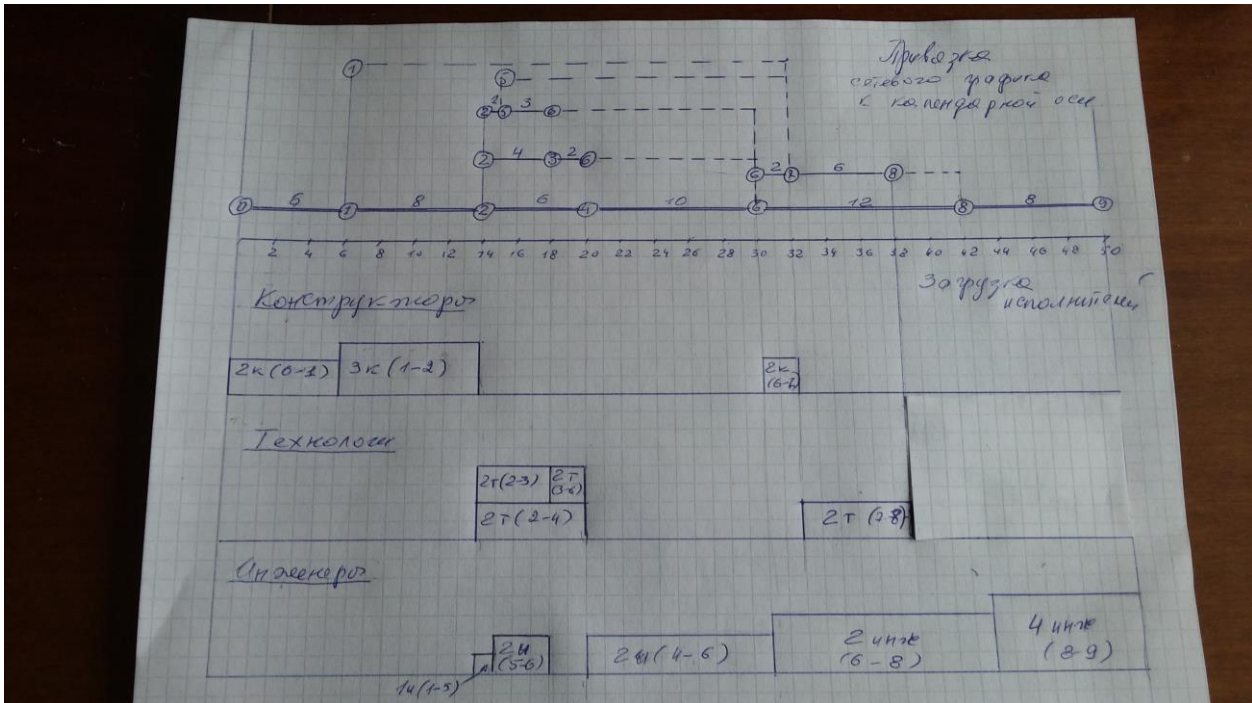 Привязка
сетевого графика
к календарной оси
1
5
1 3
2 5 6
4 2
2 3 6
2 6
6 7 8
6 8 6 10 12 8
0 1 2 4 6 8 9
2 4 6 8 10 12 14 16 18 20 22 24 26 28 30 32 34 36 38 40 42 44 46 48 50
Загрузка
исполнителей
Конструкторы
2к (0-1) 3к (1-2) 2к
(6-7)
Технологи
2т(2-3) 2т
(3-6)
2т (2-4) 2т (7-8)
Инженеры
2и
(5-6)
2и (4-6)
2 инж
(6-8)
4 инж
(8-9)